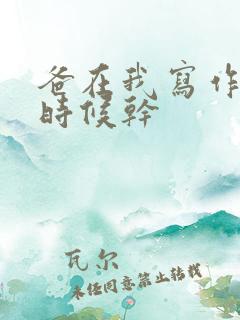 爸在我寫作
時候幹
瓦尔
未经同意禁止转载